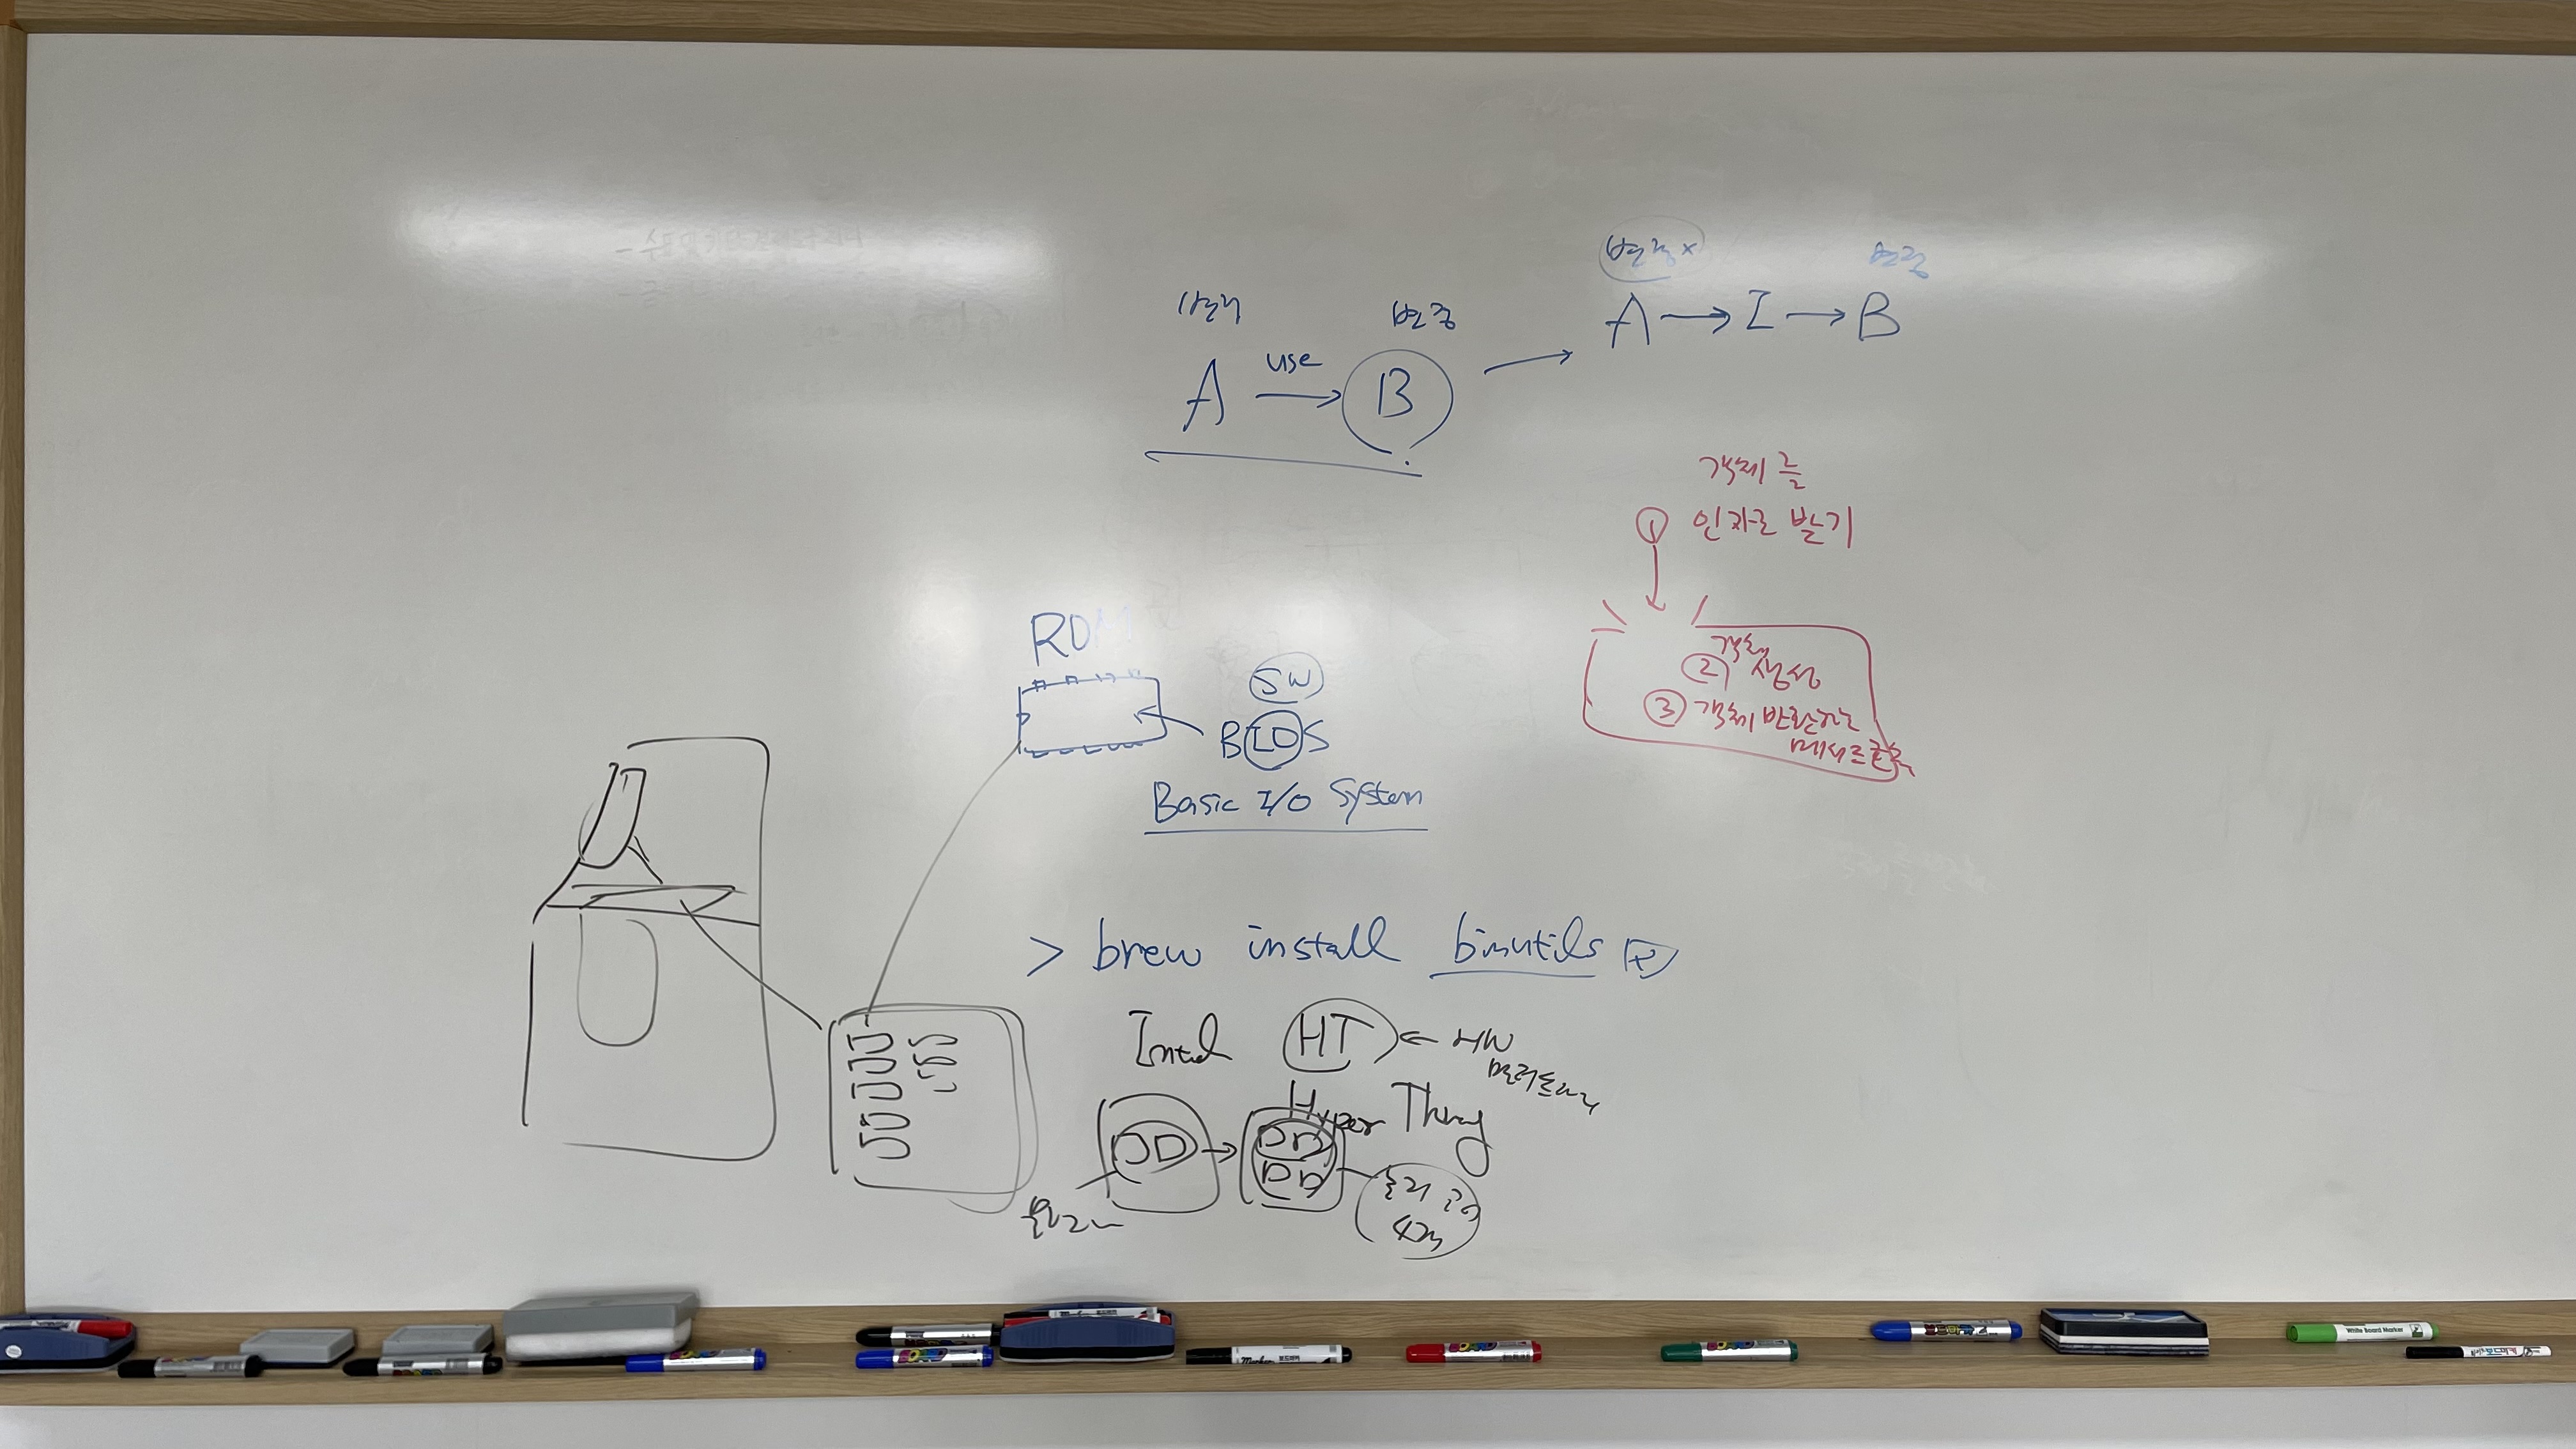 변경x 변경
A → I → B
변경
A use → B
객체를
① 인자로 받기
② 객체 생성
③ 객체 반환하는
메서드 호출
ROM
SW
BIOS
Basic I/O System
> brew install binutils
Intel HT ← HW
Hyper
논리 코어
4개
White Board Marker